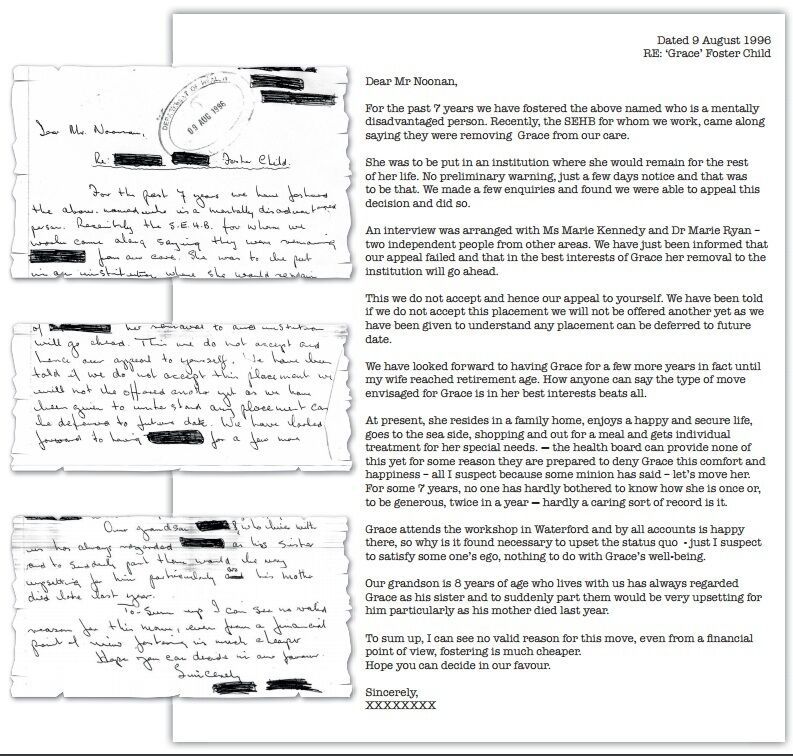 Dear Mr. Noonan,
DEPARTMENT OF HEALTH
09 AUG 1996
Re: Foster Child.
For the past 7 years we have fostered
the above named who is a mentally disadvantaged
person. Recently the S.E.H.B. for whom we
work came along saying they were removing
from our care. She was to be put
in an institution where she would remain
of her removal to and institution
will go ahead. This we do not accept and
hence our appeal to yourself. We have been
told if we do not accept this placement we
will not be offered another yet as we have
been given to understand any placement can
be deferred to future date. We have looked
forward to having for a few more
Our grandson 8, who lives with
us has always regarded as his sister
and to suddenly part them would be very
upsetting for him particularly as his mother
died late last year.
To Sum up I can see no valid
reason for this move, even from a financial
point of view fostering is much cheaper
Hope you can decide in our favour.
Sincerely
Dated 9 August 1996
RE: ‘Grace’ Foster Child
Dear Mr Noonan,
For the past 7 years we have fostered the above named who is a mentally
disadvantaged person. Recently, the SEHB for whom we work, came along
saying they were removing Grace from our care.
She was to be put in an institution where she would remain for the rest
of her life. No preliminary warning, just a few days notice and that was
to be that. We made a few enquiries and found we were able to appeal this
decision and did so.
An interview was arranged with Ms Marie Kennedy and Dr Marie Ryan –
two independent people from other areas. We have just been informed that
our appeal failed and that in the best interests of Grace her removal to the
institution will go ahead.
This we do not accept and hence our appeal to yourself. We have been told
if we do not accept this placement we will not be offered another yet as we
have been given to understand any placement can be deferred to future
date.
We have looked forward to having Grace for a few more years in fact until
my wife reached retirement age. How anyone can say the type of move
envisaged for Grace is in her best interests beats all.
At present, she resides in a family home, enjoys a happy and secure life,
goes to the sea side, shopping and out for a meal and gets individual
treatment for her special needs. – the health board can provide none of
this yet for some reason they are prepared to deny Grace this comfort and
happiness – all I suspect because some minion has said – let’s move her.
For some 7 years, no one has hardly bothered to know how she is once or,
to be generous, twice in a year – hardly a caring sort of record is it.
Grace attends the workshop in Waterford and by all accounts is happy
there, so why is it found necessary to upset the status quo - just I suspect
to satisfy some one’s ego, nothing to do with Grace’s well-being.
Our grandson is 8 years of age who lives with us has always regarded
Grace as his sister and to suddenly part them would be very upsetting for
him particularly as his mother died last year.
To sum up, I can see no valid reason for this move, even from a financial
point of view, fostering is much cheaper.
Hope you can decide in our favour.
Sincerely,
XXXXXXXX